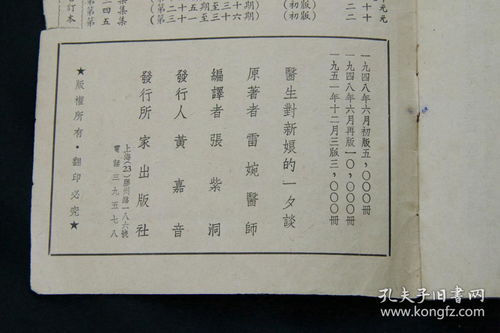 元元
二二十十
(初版)
(初版)
(第二十一期至三十期)
(第三十一期至三十六期)
第四集
第五集
合訂本
一九四八年六月初版五,〇〇〇冊
一九四八年六月再版一〇,〇〇〇冊
一九五一年十二月三版三,〇〇〇冊
醫生對新娘的一夕談
原著者 雷婉醫師
編譯者 張紫洞
發行人 黃嘉音
發行所 家出版社
上海(23)膠州路一八六號
電話三九五七八
★版權所有·翻印必究★
孔夫子旧书网
www.kongfz.com